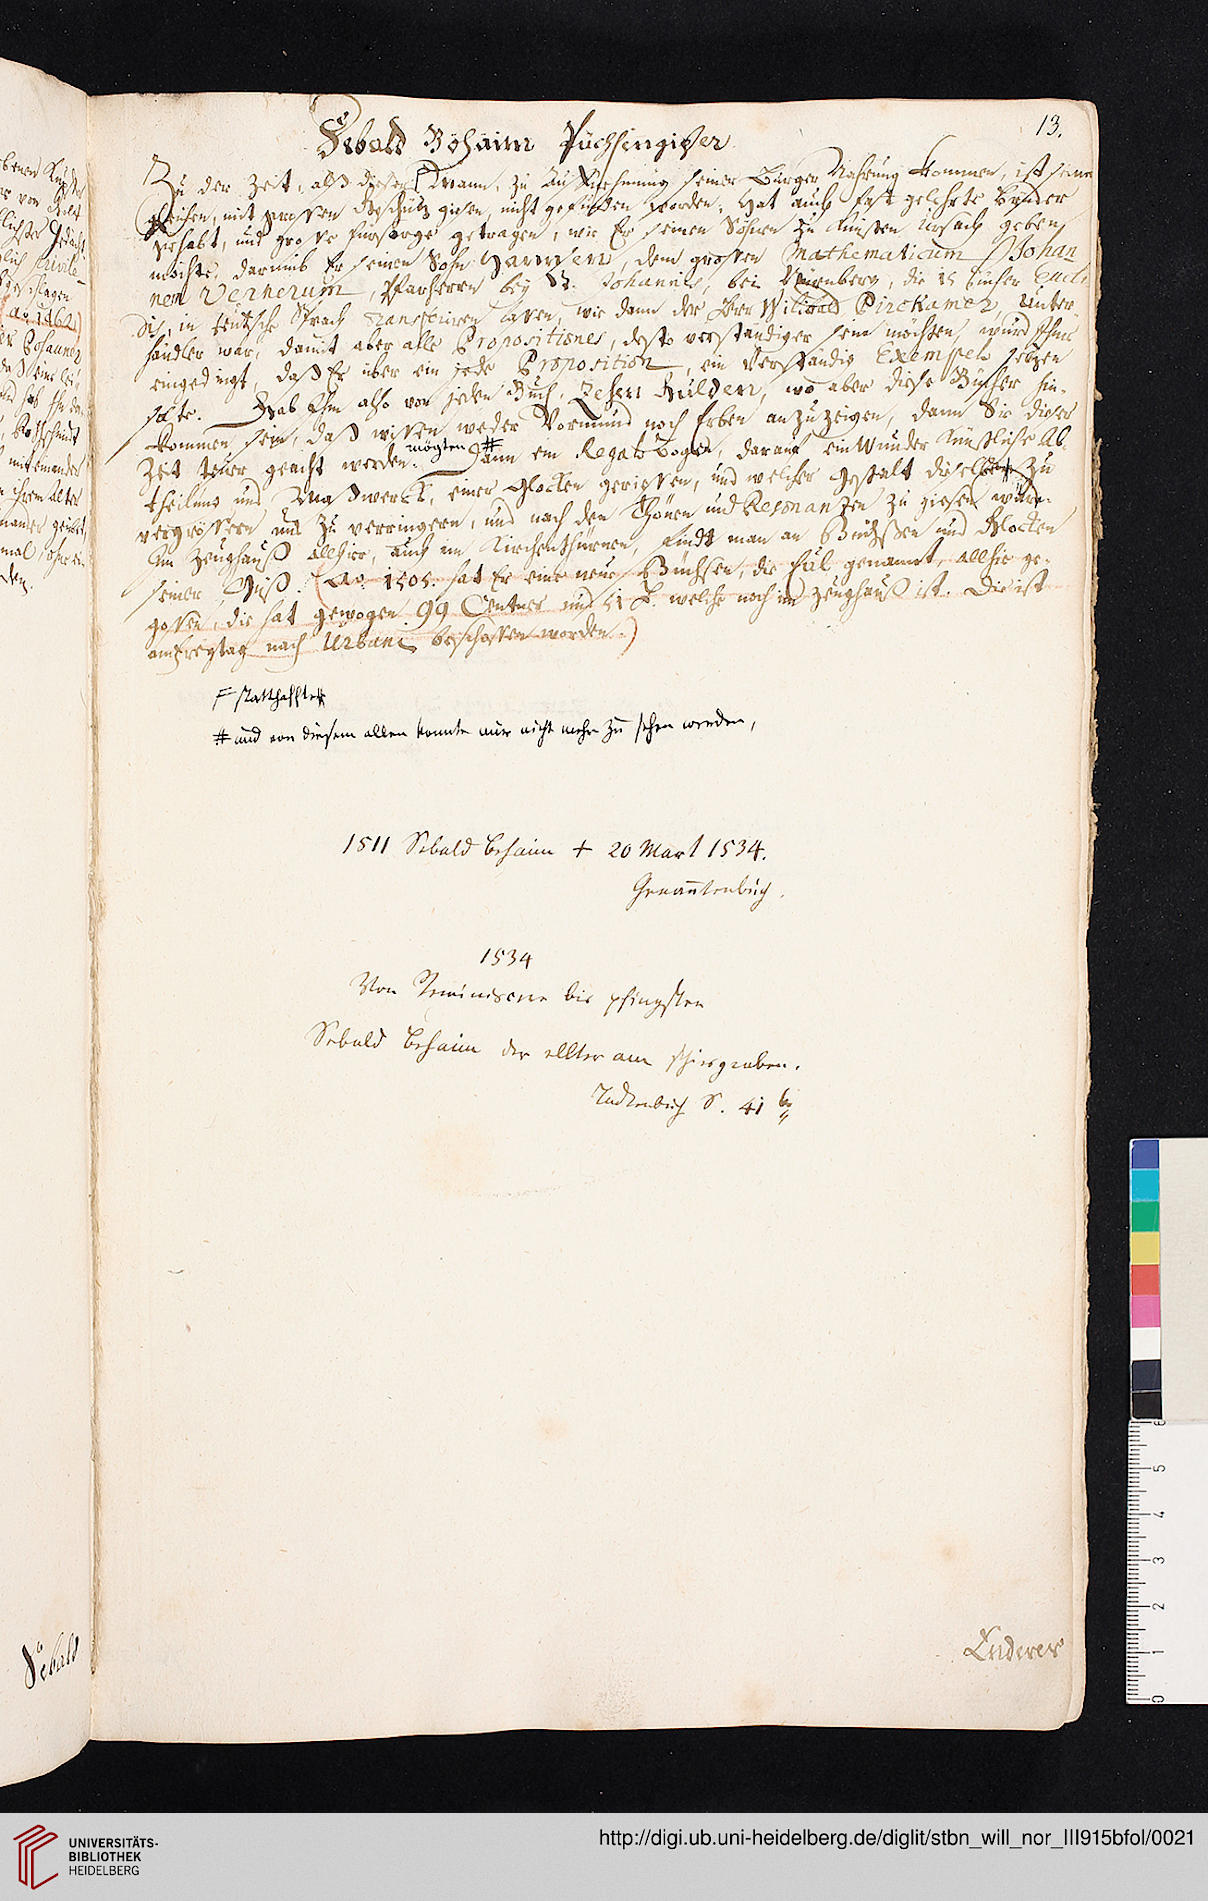 13.
Sebald Böhaim Püchsengißer
Zu der Zeit, alß dieser Mann, zu Aufnehmung seiner Bürger Nahrung kommen, ist seins
gleichen, mit grossen Geschütz giesen, nicht gefunden worden. Hat auch fast gelehrte Brüder
gehabt, und grosse fürsorge getragen, wie Er seinen Söhnen zu Künsten ursach geben
möchte, darumb Er seinen Sohn Hannsen, dem grossen Mathematicum Johan
nem Vernerum, Pfarherrn bey St. Johannis, bei Nürnberg, die 15 Bücher Eucli
dis, in teutsche Sprach transferiren lassen, wie dann der Herr Wilibald Pirckamer, Unter
händler war, damit aber alle Propositiones, desto verständiger sein möchten, wurd Ihme
eingedingt, daß Er über ein jede Proposition, ein verständig Exempel setzen
solte. Gab Ihm also von jeden Buch, Zehen Gulden, wo aber diese Bücher hin-
kommen sein, daß wissen weder Vormund noch Erben anzuzeigen, dann Sie dieser
Zeit teuer geacht werden mögten # Dann ein Regalbogen, darauf ein Wunder Künstliche Ab-
theilung und Maßwerck, einer Glocken gerissen, und welcher gestalt dieselben zu
vergrössern und zu verringern, und nach den Thönen und Resonanzen zu giesen wären.
Im Zeughauß allhier, auch in Kirchenthürnen, findt man an Büchssen und Glocken
seiner Güß. (Ao. 1505. hat Er eine neue Büchsen, die Eul genannt, allhie ge-
gossen, die hat gewogen 99 Centner und 51 ℔. welche noch im Zeughauß ist. Die ist
am Freytag nach Urbani beschossen worden.)
F statthaffte
# und von diesem allen konnte nur nicht mehr zu sehen werden,
1511 Sebald Behaim + 20 Mart 1534.
Genanntenbuch.
1534
Von Reminiscere bis pfingsten
Sebald Behaim der ellter am schiesgraben.
Todtenbuch S. 41 b
Enderes
Sebald
UNIVERSITÄTS-
BIBLIOTHEK
HEIDELBERG
http://digi.ub.uni-heidelberg.de/diglit/stbn_will_nor_III915bfol/0021